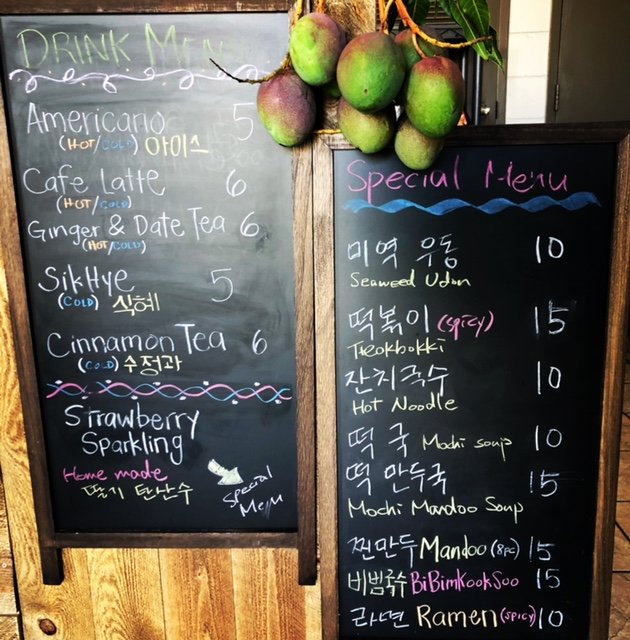 DRINK MENU
Americano 5
(HOT/COLD) 아이스
Cafe Latte 6
(HOT/COLD)
Ginger & Date Tea 6
(HOT/COLD)
SikHye 5
(COLD) 식혜
Cinnamon Tea 6
(COLD) 수정과
Strawberry
Sparkling
Home made
딸기 탄산수
Special
Menu
Special Menu
미역 우동 10
Seaweed Udon
떡볶이 (spicy) 15
Tteokbokki
잔치국수 10
Hot Noodle
떡국 Mochi soup 10
떡 만두국 15
Mochi Mandoo Soup
찐만두 Mandoo (8pc) 15
비빔국수 BiBimKookSoo 15
라면 Ramen (spicy) 10